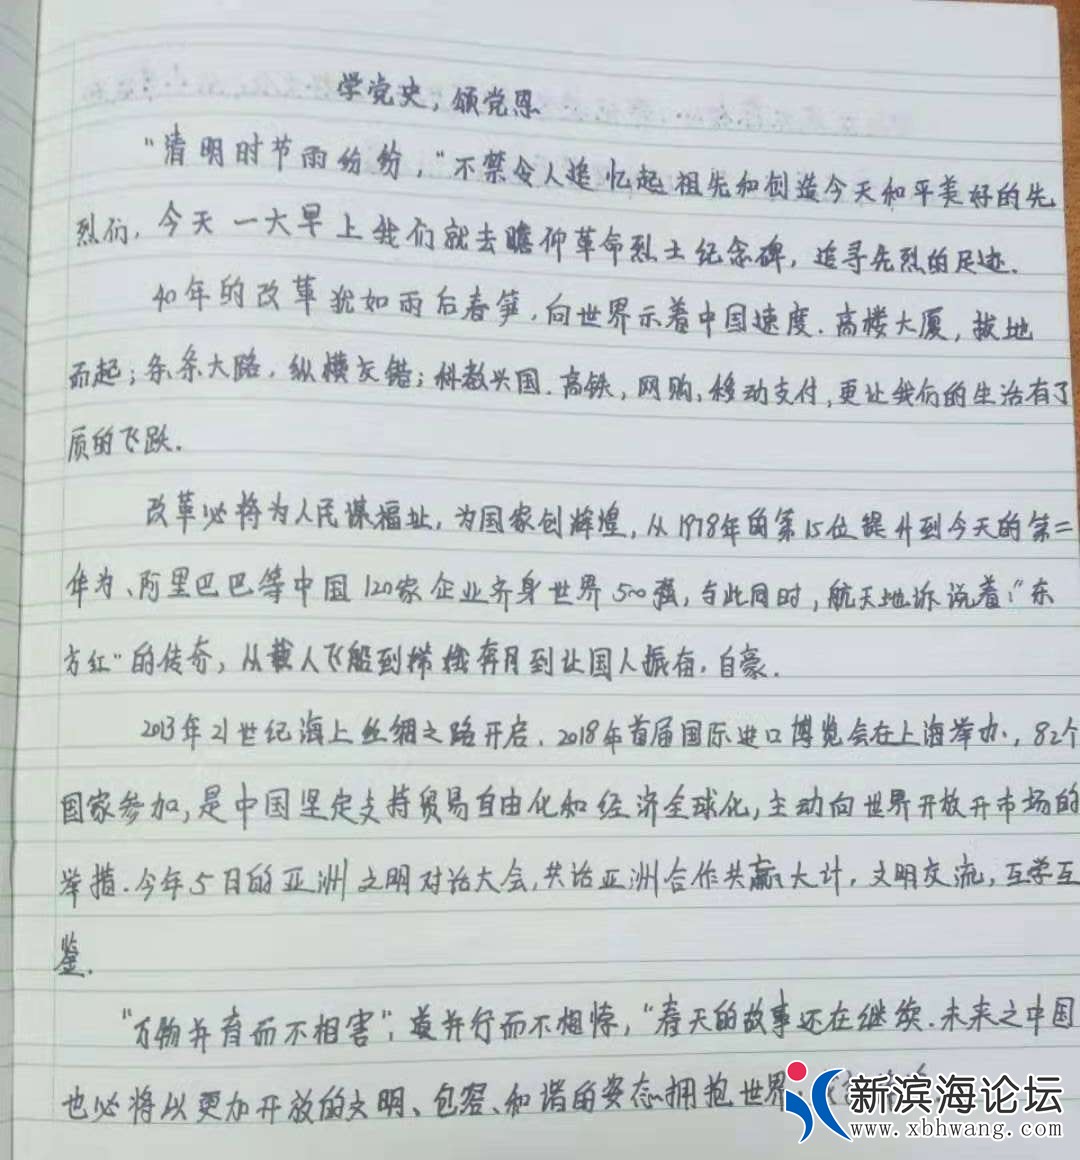 学党史，颂党恩
"清明时节雨纷纷，"不禁令人追忆起祖先和创造今天和平美好的先
烈们，今天一大早上我们就去瞻仰革命烈士纪念碑，追寻先烈的足迹.
40年的改革犹如雨后春笋，向世界示着中国速度.高楼大厦，拔地
而起；条条大路，纵横交错；科教兴国.高铁，网购，移动支付，更让我们的生活有了
质的飞跃.
改革必将为人民谋福址，为国家创辉煌，从1978年的第15位提升到今天的第二
华为、阿里巴巴等中国120家企业齐身世界500强，与此同时，航天地诉说着："东
方红"的传奇，从载人飞船到嫦娥奔月到让国人振奋，自豪.
2013年21世纪海上丝绸之路开启、2018年首届国际进口博览会在上海举办，82个
国家参加，是中国坚定支持贸易自由化和经济全球化，主动向世界开放开市场的
举措.今年5日的亚洲文明对话大会，共话亚洲合作共赢大计，文明交流，互学互
鉴.
"万物并育而不相害"，道并行而不相悖，"春天的故事还在继续.未来之中国
也必将以更加开放的文明、包容、和谐的姿态拥抱世界
新滨海论坛
www.xbhwang.com